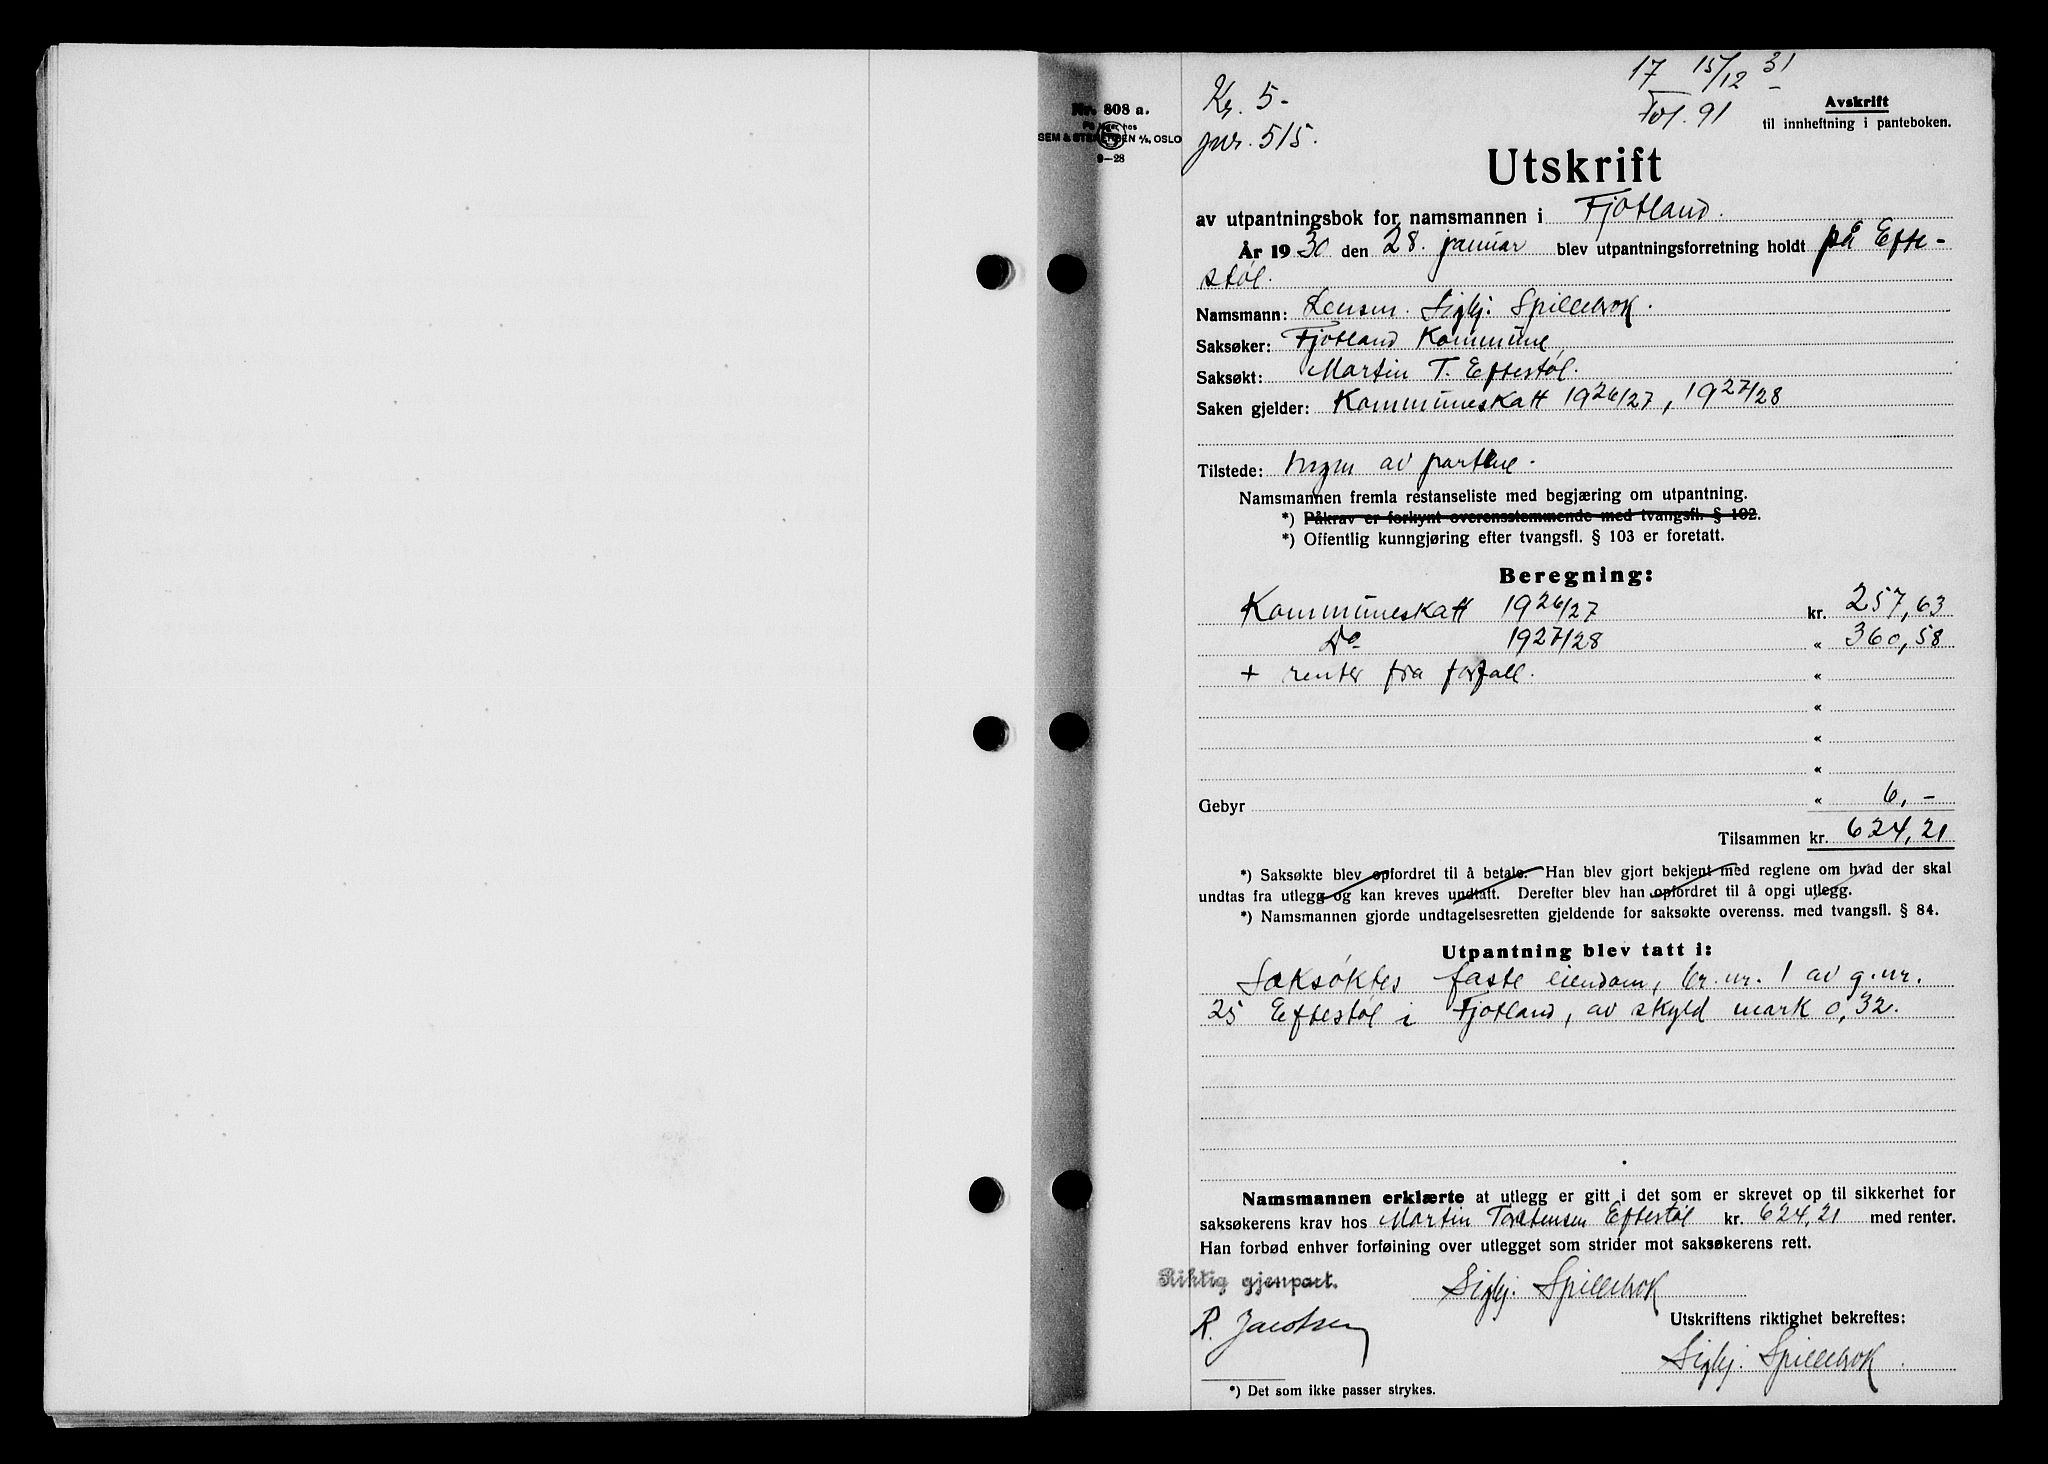 17 15/12 31
Kr. 5-
Fol. 91
Avskrift
til innheftning i panteboken.
jnr. 515.
Nr. 808 a.
På lager hos
SEM & STENERSEN A/S, OSLO
9—28
Utskrift
av utpantningsbok for namsmannen i Fjotland.
År 1930 den 28. januar blev utpantningsforretning holdt på Efte-
støl.
Namsmann: Lensm. Sigbj. Spillebrok.
Saksøker: Fjotland Kommune
Saksøkt: Martin T. Eftestøl.
Saken gjelder: Kommuneskatt 1926/27, 1927/28
Tilstede: Ingen av partene.
Namsmannen fremla restanseliste med begjæring om utpantning.
*) Påkrav er forkynt overensstemmende med tvangsfl. § 102.
*) Offentlig kunngjøring efter tvangsfl. § 103 er foretatt.
Beregning:
Kommuneskatt 1926/27 kr. 257,63
Do 1927/28 « 360,58
+ renter fra forfall. «
«
«
«
Gebyr « 6,-
Tilsammen kr. 624,21
*) Saksøkte blev opfordret til å betale. Han blev gjort bekjent med reglene om hvad der skal
undtas fra utlegg og kan kreves undtatt. Derefter blev han opfordret til å opgi utlegg.
*) Namsmannen gjorde undtagelsesretten gjeldende for saksøkte overenss. med tvangsfl. § 84.
Utpantning blev tatt i:
Saksøktes faste eiendom, br. nr. 1 av g.nr.
25 Eftestøl i Fjotland, av skyld mark 0,32.
Namsmannen erklærte at utlegg er gitt i det som er skrevet op til sikkerhet for
saksøkerens krav hos Martin Torstensen Eftestøl kr. 624,21 med renter.
Han forbød enhver forføining over utlegget som strider mot saksøkerens rett.
Riktig gjenpart.
Sigbj. Spillebrok
R. Jacobsen
Utskriftens riktighet bekreftes:
Sigbj. Spillebrok.
*) Det som ikke passer strykes.